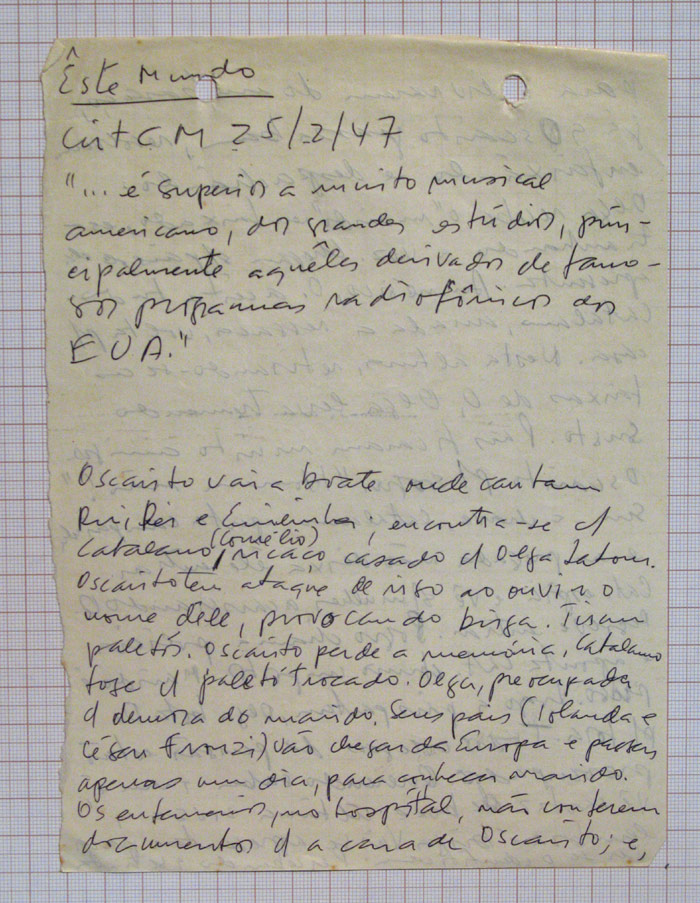 Êste Mundo
Crít C M 25/2/47
"... é superior a muito musical
americano, dos grandes estúdios, prin-
cipalmente aquêles derivados de famo-
sos programas radiofônicos dos
EUA."
Oscarito vai a boate onde cantam
Rui Rei e Emilinha, encontra-se c/
Catalano (Cornélio), ricaço casado c/ Olga Latour.
Oscarito tem ataque de riso ao ouvir o
nome dêle, provocando briga. Tiram
paletós. Oscarito perde a memória, Catalano
foge c/ paletó trocado. Olga, preocupada
c/ demora do marido. Seus pais (Iolanda e
César Fronzi) vão chegar da Europa e passar
apenas um dia, para conhecer marido.
Os enfermeiros, no hospital, não conferem
documentos c/ a cara de Oscarito; e,